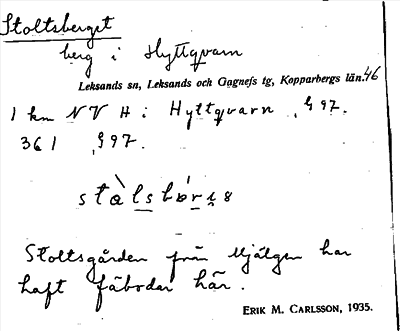 Stoltsberget
berg i Hyttqvarn
Leksands sn, Leksands och Gagnefs tg, Kopparbergs län. 46
1 km NV H i Hyttqvarn, S 97.
361 S 97.
Stoltsgården från Mjälgen har
haft fäbodar här.
ERIK M. CARLSSON, 1935.